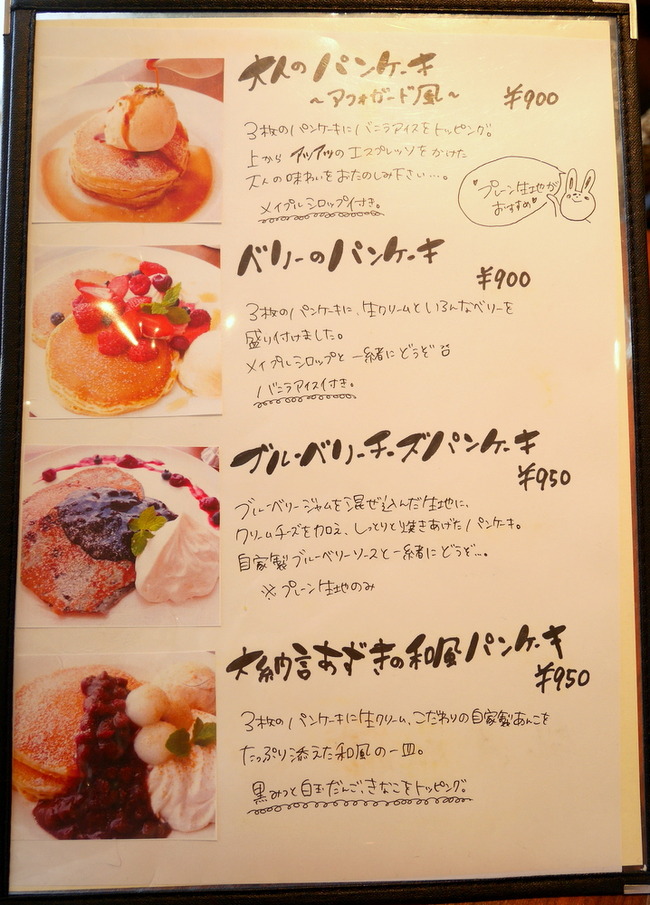 大人のパンケーキ
～アフォガード風～
¥900
3枚のパンケーキにバニラアイスをトッピング。
上からアツアツのエスプレッソをかけた
大人の味わいをおたのしみ下さい…。
メイプルシロップ付き。
プレーン生地が
おすすめ
ベリーのパンケーキ
¥900
3枚のパンケーキに、生クリームといろんなベリーを
盛り付けました。
メイプルシロップと一緒にどうぞ
バニラアイス付き。
ブルーベリーチーズパンケーキ
¥950
ブルーベリージャムを混ぜ込んだ生地に、
クリームチーズを加え、しっとりと焼きあげたパンケーキ。
自家製ブルーベリーソースと一緒にどうぞ…。
※プレーン生地のみ
大納言あずきの和風パンケーキ
¥950
3枚のパンケーキに生クリーム、こだわりの自家製あんこを
たっぷり添えた和風の一皿。
黒みつと白玉だんご、きなこをトッピング。